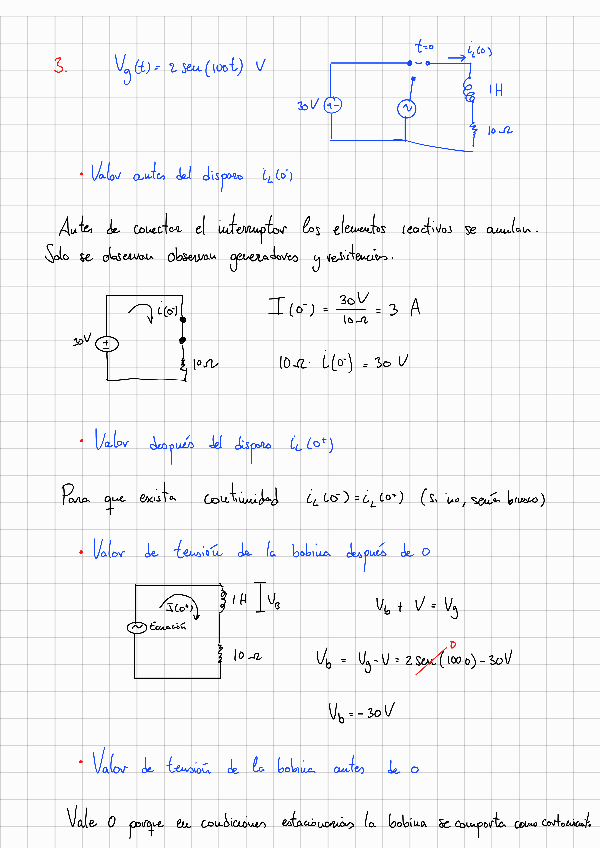 3. Vg(t) = 2 sen(100t) V
t=0
iL(0)
30V
1H
10Ω
• Valor antes del disparo iL(0⁻)
Antes de conectar el interruptor los elementos reactivos se anulan.
Solo se observan observan generadores y resistencias.
i(0⁻)
30V
10Ω
I(0⁻) = 30V/10Ω = 3 A
10Ω · i(0⁻) = 30 V
• Valor después del disparo iL(0⁺)
Para que exista continuidad iL(0⁻) = iL(0⁺) (si no, sería brusco)
• Valor de tensión de la bobina después de 0
I(0⁺)
Ecuación
1H
VB
10Ω
Vb + V = Vg
Vb = Vg - V = 2 sen(100·0) - 30V
0
Vb = -30V
• Valor de tensión de la bobina antes de 0
Vale 0 porque en condiciones estacionarias la bobina se comporta como cortocircuito